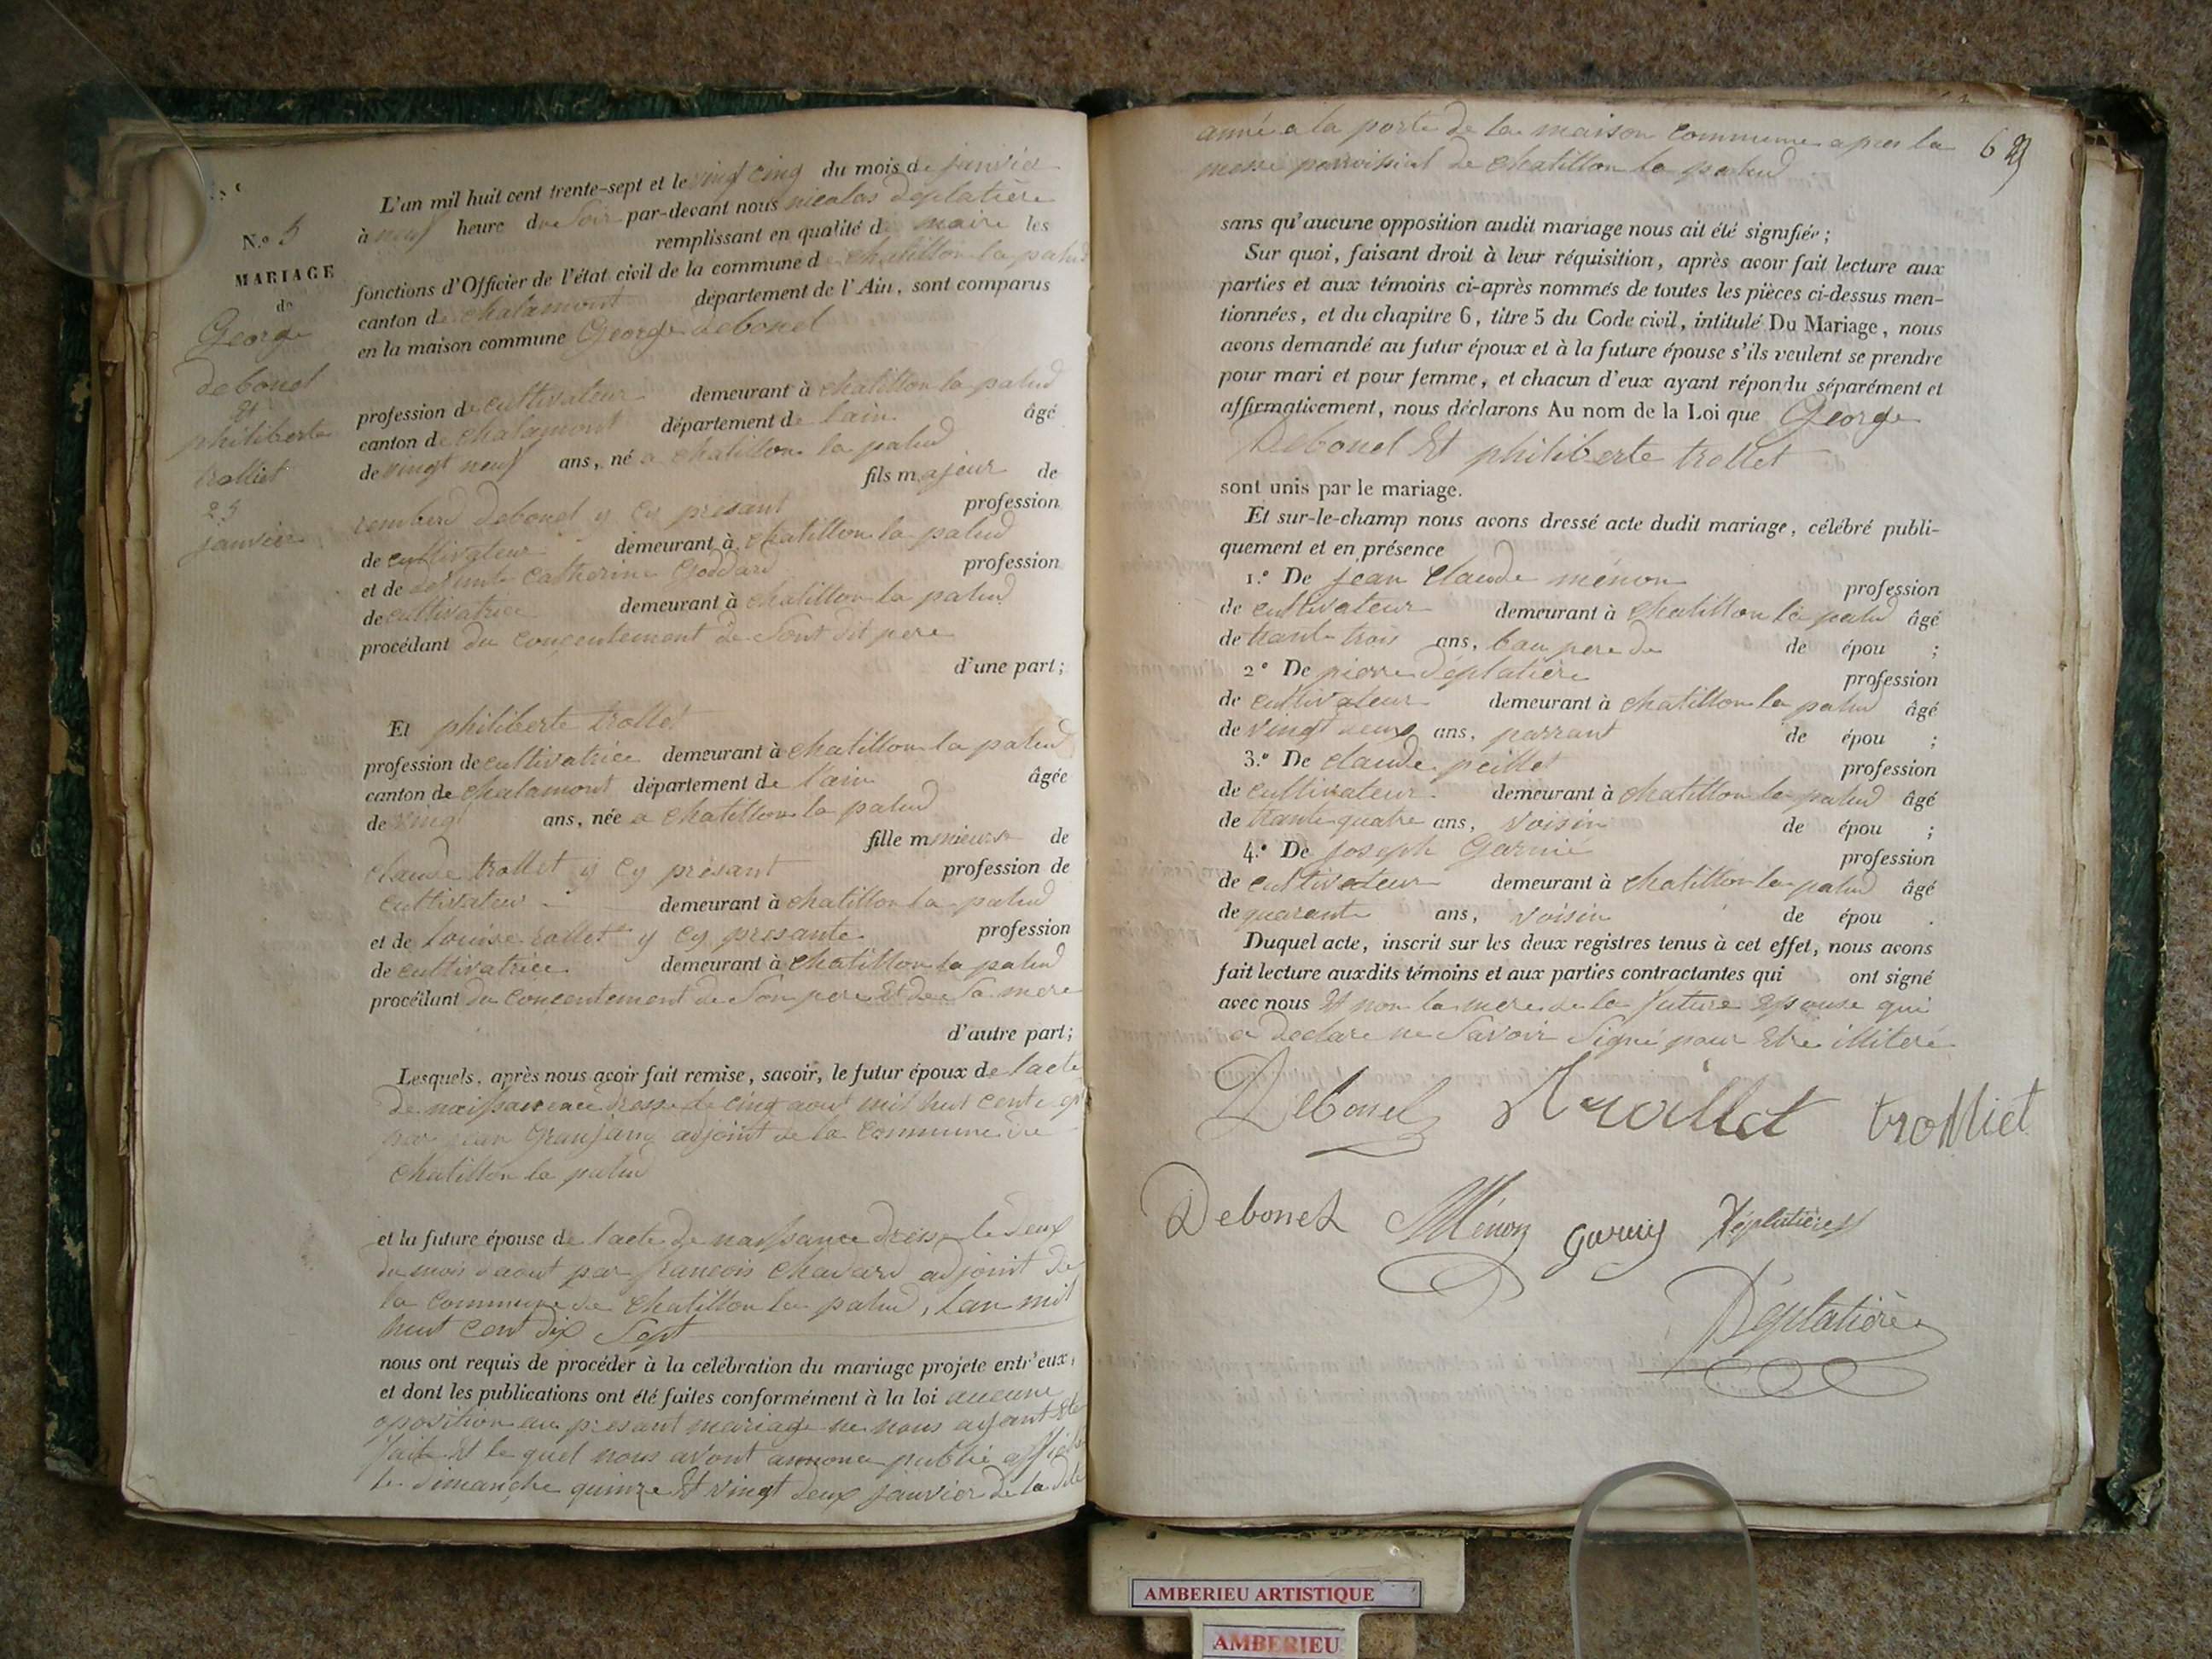 N.o 5
MARIAGE
de
George
debonel
et
philiberte
trolliet
25
janvier
L'an mil huit cent trente-sept et le vingt cinq du mois de janvier
à neuf heure du soir par-devant nous nicolas déplatière
remplissant en qualité de maire les
fonctions d'Officier de l'état civil de la commune de chatillon la palud
canton de chalamont département de l'Ain, sont comparus
en la maison commune George debonel
profession de cultivateur demeurant à chatillon la palud
canton de chalamont département de lain âgé
de vingt neuf ans, né a chatillon la palud
fils majeur de
rembert debonel y cy présant profession
de cultivateur demeurant à chatillon la palud
et de defunte catherine Goddard profession
de cultivatrice demeurant à chatillon la palud
procédant du concentement de Sont dit pere
d'une part;
Et philiberte trollet
profession de cultivatrice demeurant à chatillon la palud
canton de chalamont département de l'ain âgée
de vingt ans, née a chatillon la palud
fille mmieure de
claude trollet y cy présant profession de
cultivateur demeurant à chatillon la palud
et de Louise rollet y cy presante profession
de cultivatrice demeurant à chatillon la palud
procédant du concentement de Son pere Et de Sa mere
d'autre part;
Lesquels, après nous avoir fait remise, savoir, le futur époux de lacte
de naissance dressé le cinq aout mil huit cent
par jean adjoint de la Commune de
chatillon la palud
et la future épouse de lacte de naissance dressé le deux
du mois daout par francois chavard adjoint de
la commune de chatillon la palud, lan mil
huit cent dix Sept
nous ont requis de procéder à la célébration du mariage projeté entr'eux,
et dont les publications ont été faites conformément à la loi aucune
oposition au presant mariage ne nous ayant Eté
faite Et le quel nous avont annoncé publié affiché
le dimanche quinze Et vingt deux janvier de la dite
année a la porte de la maison commune apres la
messe parroisial de chatillon la palud
sans qu'aucune opposition audit mariage nous ait été signifiée;
Sur quoi, faisant droit à leur réquisition, après avoir fait lecture aux
parties et aux témoins ci-après nommés de toutes les pièces ci-dessus men-
tionnées, et du chapitre 6, titre 5 du Code civil, intitulé Du Mariage, nous
avons demandé au futur époux et à la future épouse s'ils veulent se prendre
pour mari et pour femme, et chacun d'eux ayant répondu séparément et
affirmativement, nous déclarons Au nom de la Loi que George
Debonel Et philiberte trollet
sont unis par le mariage.
Et sur-le-champ nous avons dressé acte dudit mariage, célébré publi-
quement et en présence
1.o De jean claude ménon profession
de cultivateur demeurant à chatillon la palud âgé
de trante trois ans, bau pere du de épou ;
2o De pierre déplatière profession
de cultivateur demeurant à chatillon la palud âgé
de vingt deux ans, parrant de épou ;
3.o De claude peillet profession
de cultivateur demeurant à chatillon la palud âgé
de trante quatre ans, voisin de épou ;
4.o De joseph Garnié profession
de cultivateur demeurant à chatillon la palud âgé
de quarante ans, voisin de épou .
Duquel acte, inscrit sur les deux registres tenus à cet effet, nous avons
fait lecture auxdits témoins et aux parties contractantes qui ont signé
avec nous Et non la mere de la future Epouse qui
a declare ne Savoir Signé pour Etre illiteré
Debonel trolliet
Debonel Ménon garniy Déplatière
Déplatière
AMBERIEU ARTISTIQUE
AMBERIEU